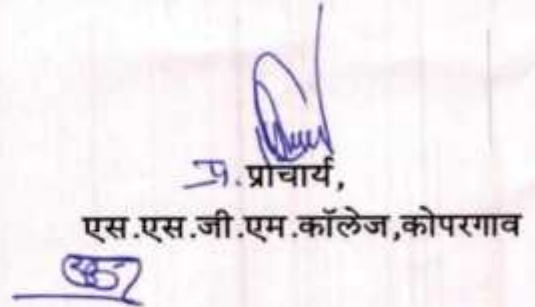 प्र.प्राचार्य,
एस.एस.जी.एम.कॉलेज,कोपरगाव